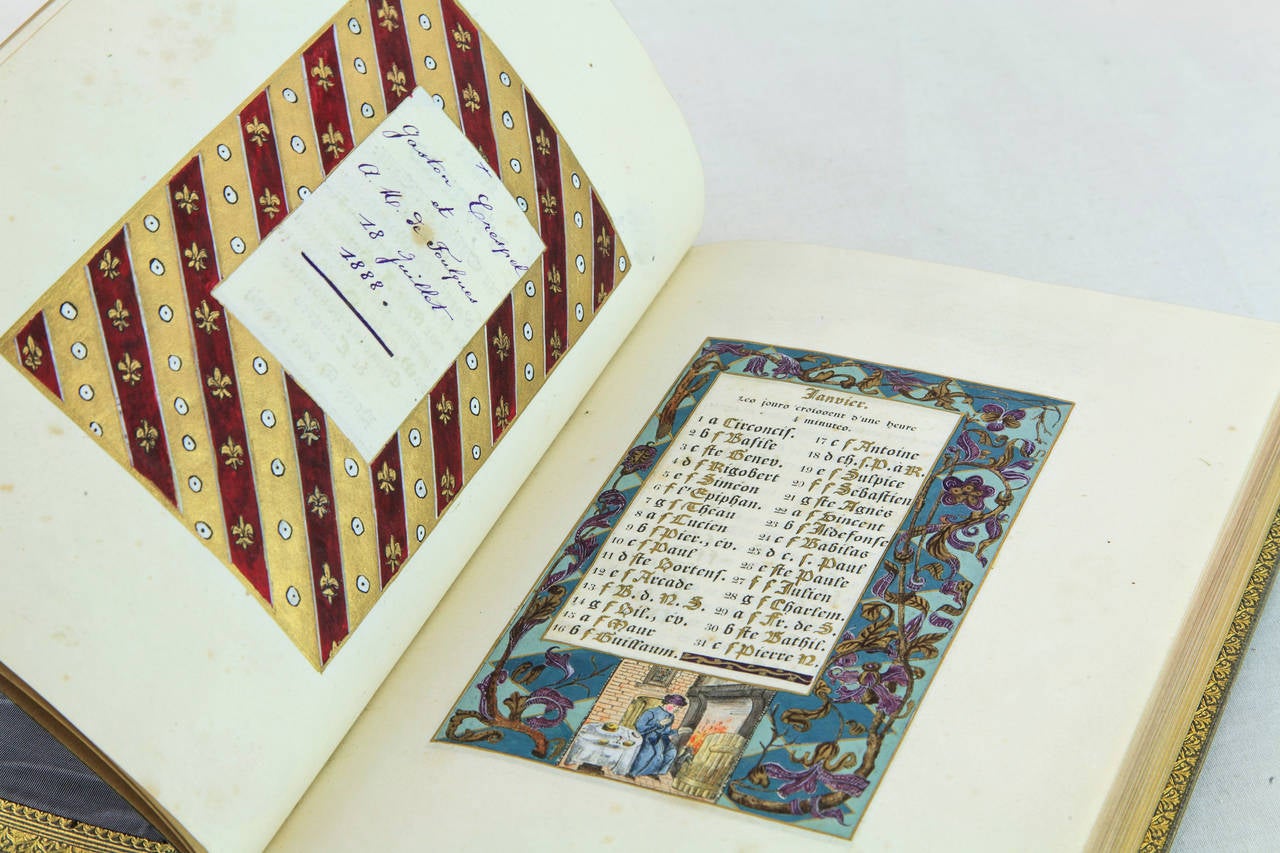 Gaston et Crespel
A M. de Foulques
18 Juillet
1888.
Janvier.
Les jours croissent d'une heure
4 minutes.
1 a Circoncis.
2 b f Basile
3 c ste Genev.
4 d f Rigobert
5 e f Simeon
6 f l'Epiphan.
7 g f Theau
8 a f Lucien
9 b f Pier., ev.
10 c f Paul
11 d ste Hortens.
12 e f Arcade
13 f B. d. N. S.
14 g f Hil., ev.
15 a f Maur
16 b f Guillaum.
17 c f Antoine
18 d ch. s. P. à R.
19 e f Sulpice
20 f f Sebastien
21 g ste Agnès
22 a f Vincent
23 b f Ildefonse
24 c f Babilas
25 d c. s. Paul
26 e ste Paule
27 f f Julien
28 g f Charlem.
29 a f Fr. de S.
30 b ste Bathil.
31 c f Pierre N.